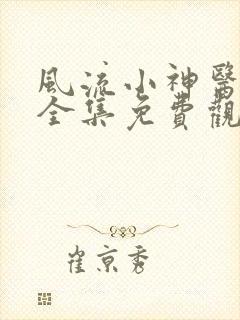 風流小神醫
全集免費觀
崔京秀